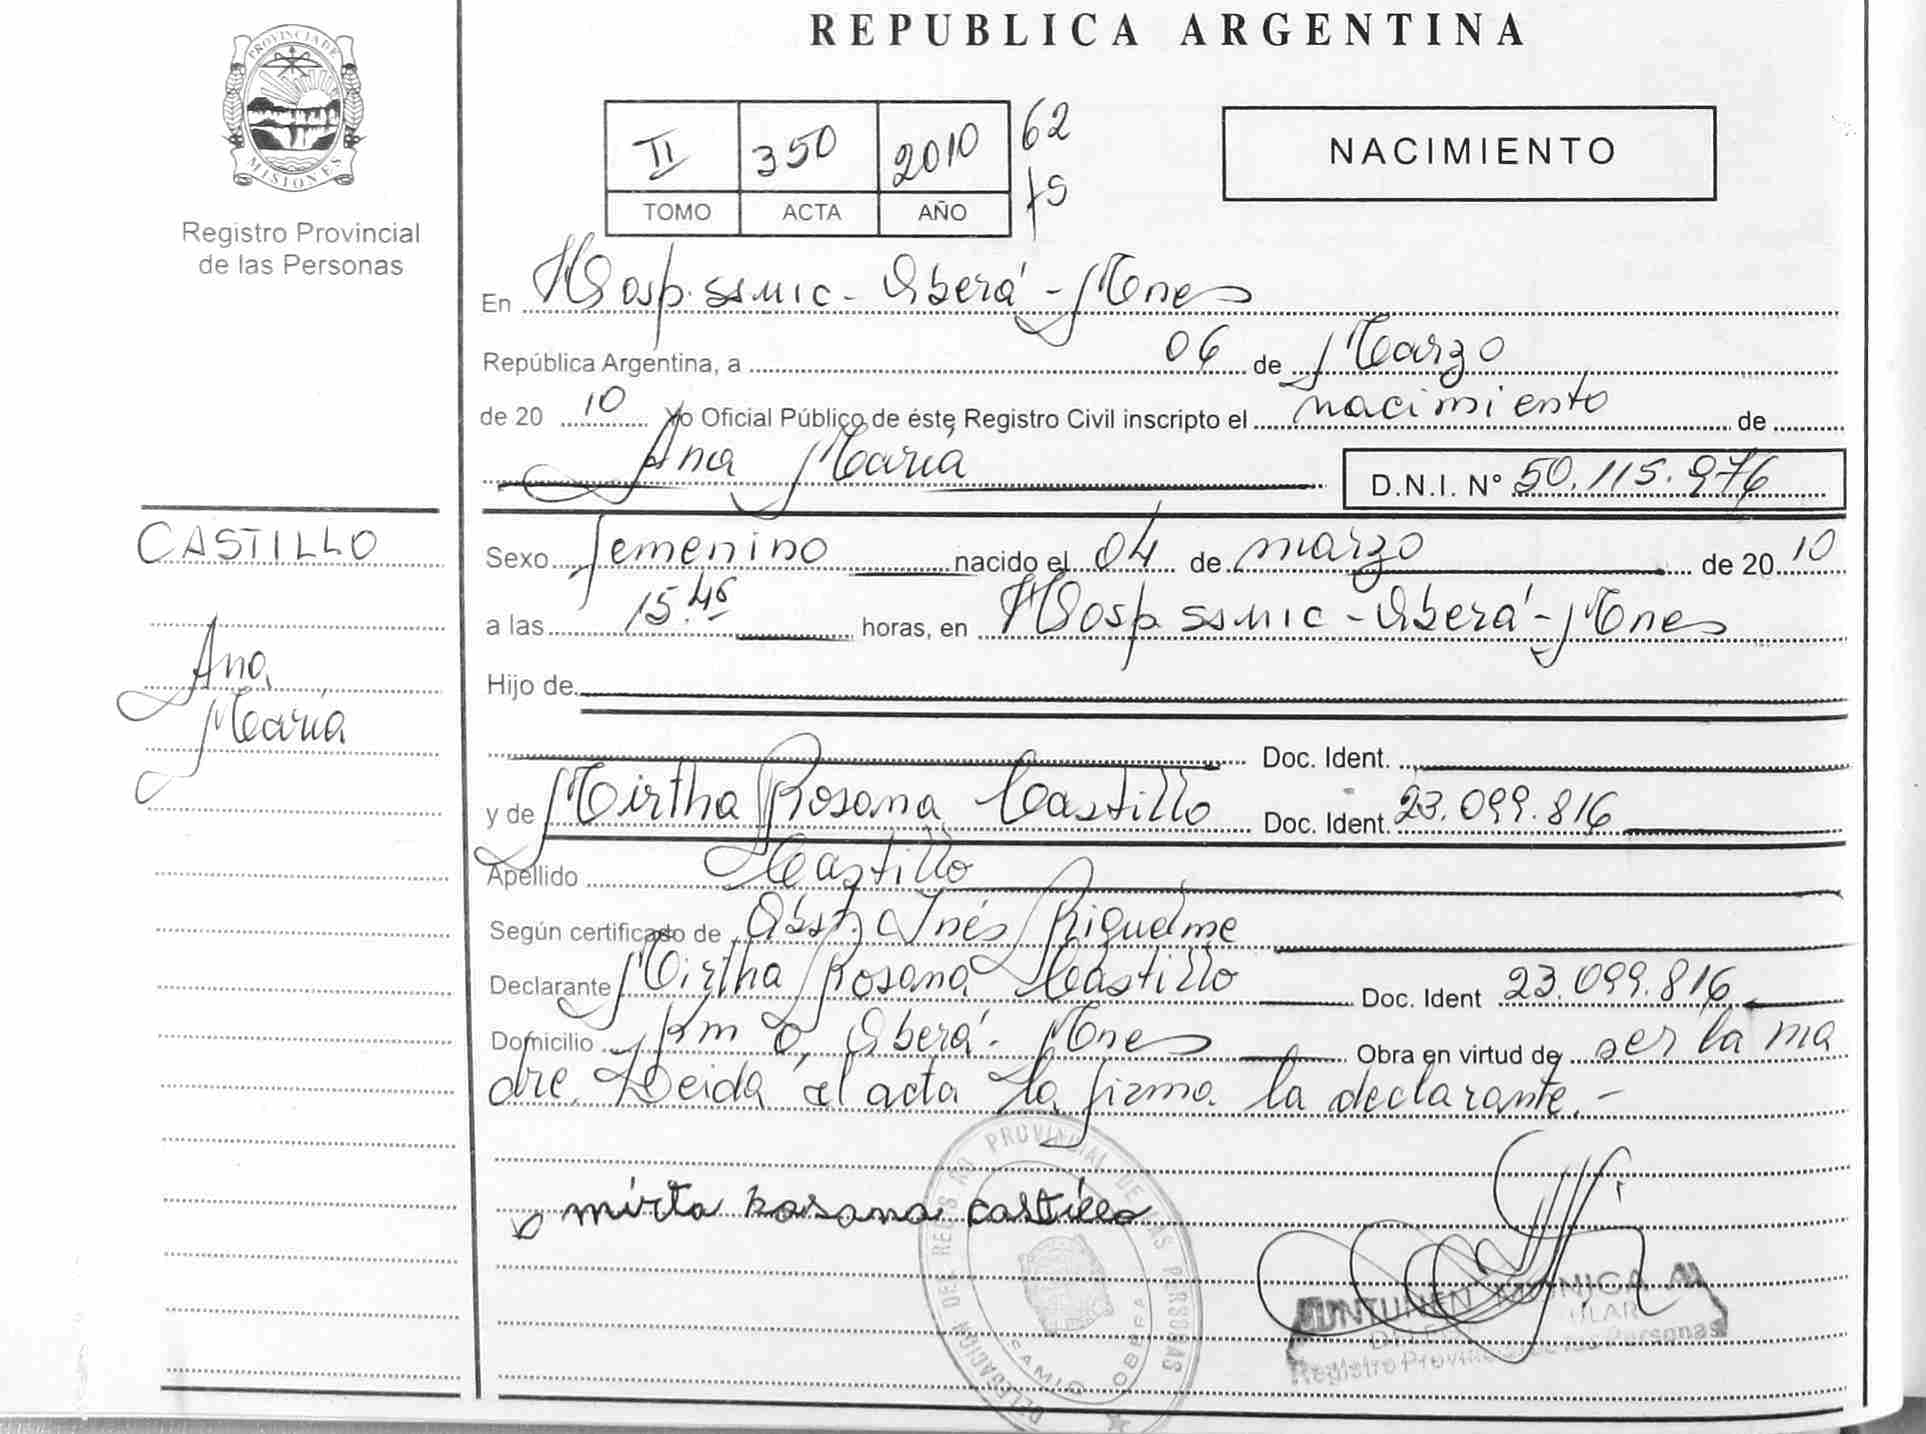 REPUBLICA ARGENTINA
PROVINCIA DE MISIONES
Registro Provincial
de las Personas
II 350 2010 62
TOMO ACTA AÑO
NACIMIENTO
En Hosp. ssmic - Oberá - Mnes
República Argentina, a 06 de Marzo
de 20 10 Yo Oficial Público de éste Registro Civil inscripto el nacimiento de
Ana María D.N.I. Nº 50.115.976
CASTILLO
Ana
María
Sexo femenino nacido el 04 de marzo de 20 10
a las 15.46 horas, en Hosp. ssmic - Oberá - Mnes
Hijo de
Doc. Ident.
y de Mirtha Rosana Castillo Doc. Ident. 23.099.816
Apellido Castillo
Según certificado de Obst. Inés Riquelme
Declarante Mirtha Rosana Castillo Doc. Ident 23.099.816
Domicilio km 0, Oberá - Mnes Obra en virtud de ser la ma
dre. Leida el acta la firma la declarante.-
mirta Rosana castillo
DELEGACION DEL REGISTRO PROVINCIAL DE LAS PERSONAS
SAMIC OBERA
MONICA
Registro Provincial de las Personas